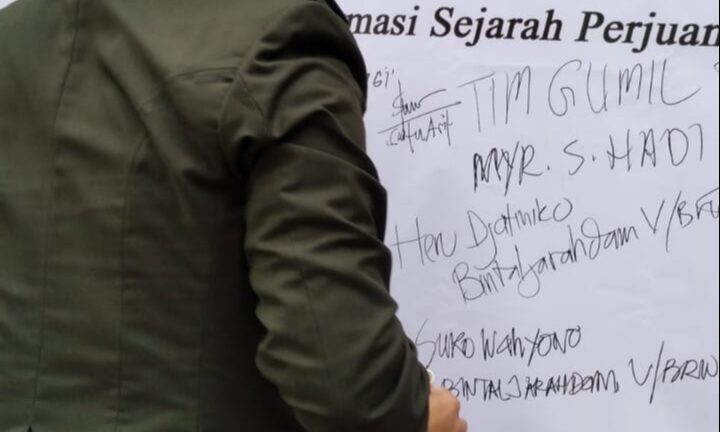 masi Sejarah Perjuan
TIM GUMIL
MYR. S. HADI
Heru Djatmiko
Bintaljarahdam V/BR
SUKO WAHYONO
BINTALJARAHDAM V/BRW